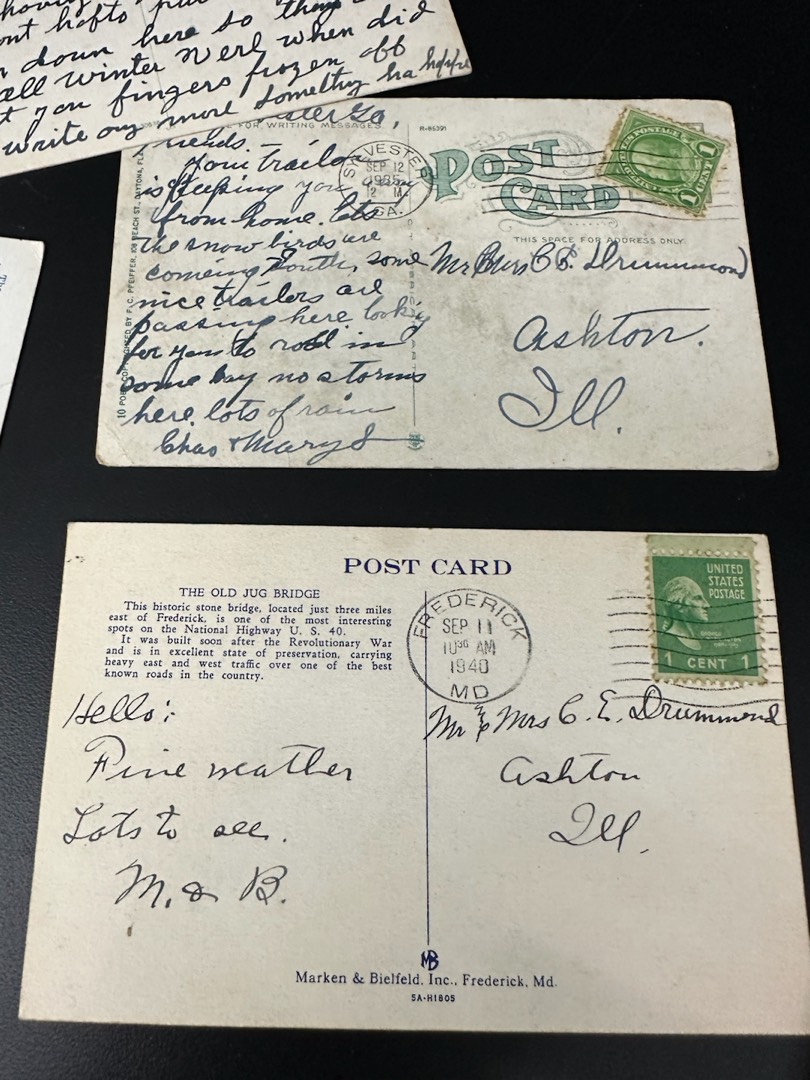 down here so
all winter Nerl when did
you fingers frozen off
write any more something ha ha ha
FOR WRITING MESSAGES
R-86391
POST
CARD
THIS SPACE FOR ADDRESS ONLY
SYLVESTER
SEP 12
1935
GA.
1 CENT 1
friends.
your trailor
is keeping you away
from home. lots
the snow birds are
comeing South, some
nice trailers are
passing here lookig
for you to roll in
some day no storms
here. lots of rain
Chas & Mary S
Mr & Mrs C E. Drummond
Ashton.
Ill.
POST CARD
THE OLD JUG BRIDGE
This historic stone bridge, located just three miles
east of Frederick, is one of the most interesting
spots on the National Highway U. S. 40.
It was built soon after the Revolutionary War
and is in excellent state of preservation, carrying
heavy east and west traffic over one of the best
known roads in the country.
FREDERICK
SEP 11
10 30 AM
1940
MD
UNITED
STATES
POSTAGE
1 CENT 1
Hello:
Fine weather
Lots to see.
M. & B.
Mr & Mrs C. E. Drummond
Ashton
Ill.
MB
Marken & Bielfeld, Inc., Frederick, Md.
5A-H1805